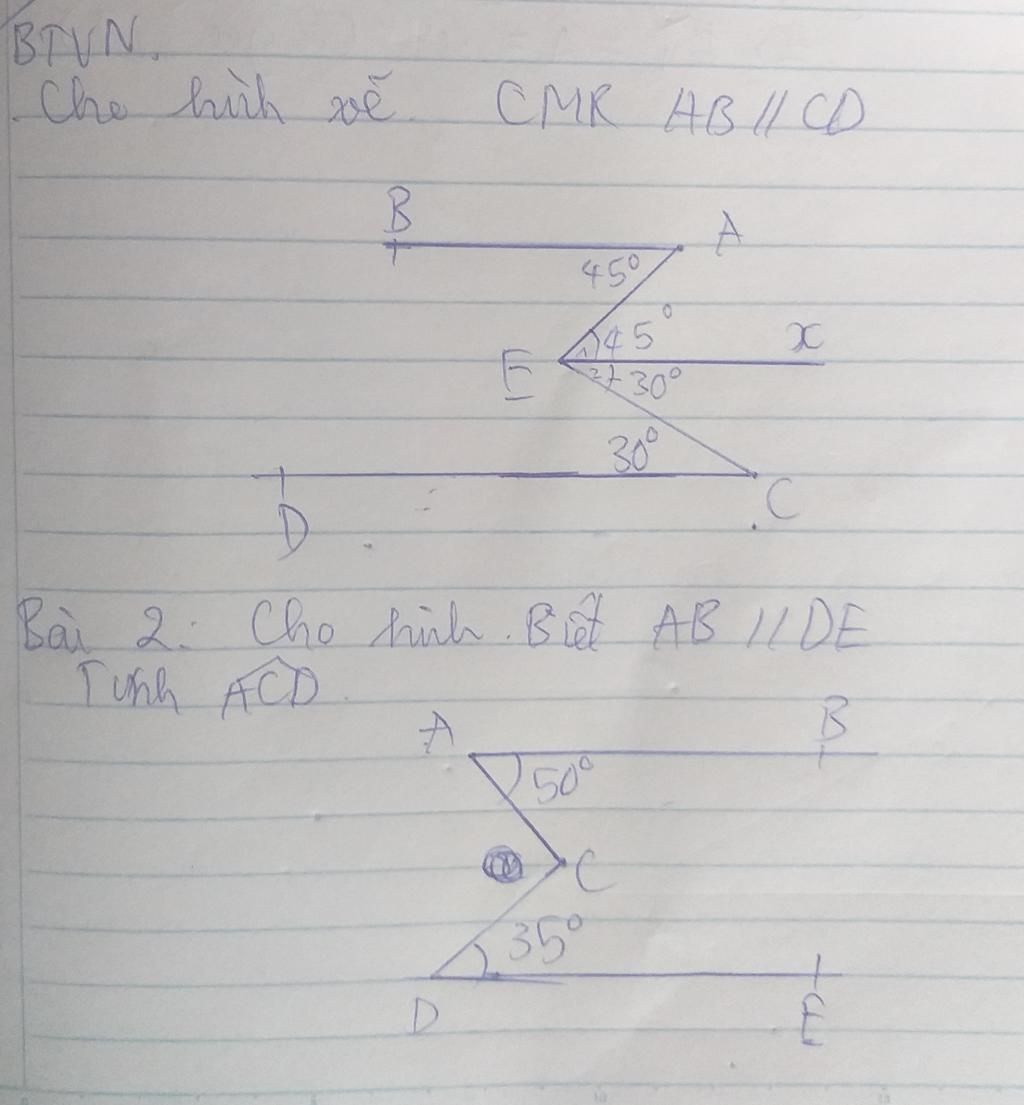 BTVN.
Cho hình vẽ CMR AB // CD
B
A
45°
1 45°
x
E
2 30°
30°
C
D
Bài 2: Cho hình. Biết AB // DE
Tính ACD
A
B
50°
C
35°
D
E